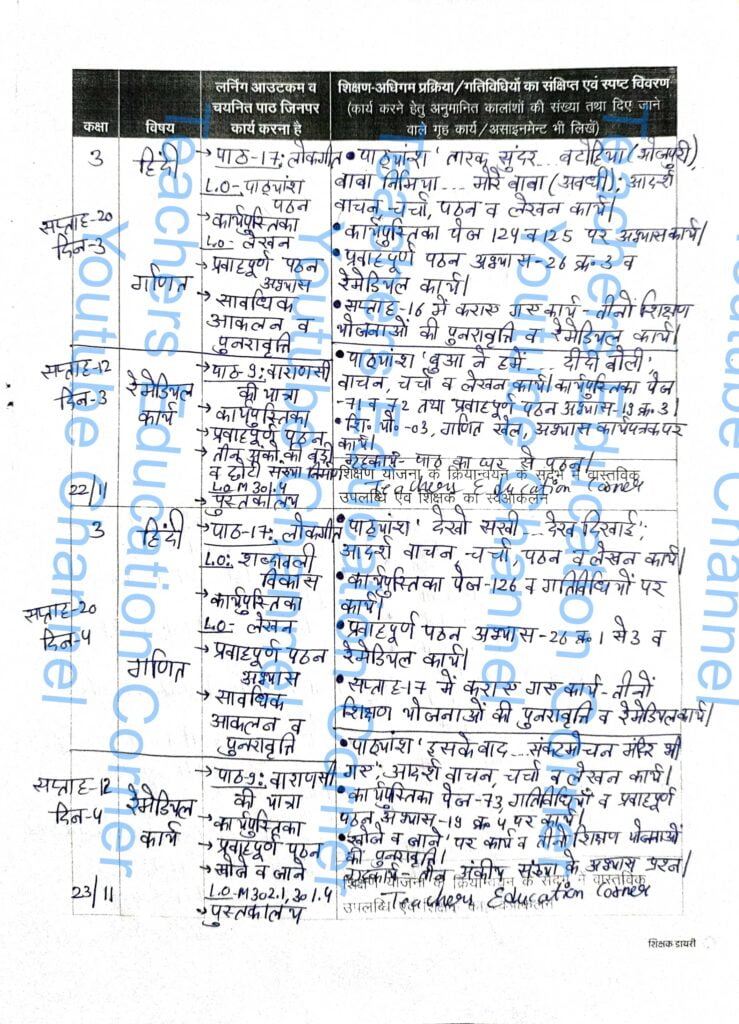 कक्षा
विषय
लर्निंग आउटकम व
चयनित पाठ जिनपर
कार्य करना है
शिक्षण-अधिगम प्रक्रिया/गतिविधियों का संक्षिप्त एवं स्पष्ट विवरण
(कार्य करने हेतु अनुमानित कालांशों की संख्या तथा दिए जाने
वाले गृह कार्य/असाइनमेन्ट भी लिखें)
3
सप्ताह-20
दिन-3
हिंदी
गणित
→पाठ-17: लोकगीत
L.O-पाठ्यांश
पठन
→कार्यपुस्तिका
L.O- लेखन
→प्रवाहपूर्ण पठन
अभ्यास
→ सावधिक
आकलन व
पुनरावृत्ति
•पाठ्यांश 'तारक सुंदर... बटोहिया (भोजपुरी),
बाबा निमिया... मोरे बाबा (अवधी); आदर्श
वाचन, चर्चा, पठन व लेखन कार्य।
•कार्यपुस्तिका पेज 124 व 125 पर अभ्यास कार्य।
•प्रवाहपूर्ण पठन अभ्यास-26 क्र.3 व
रेमेडियल कार्य।
•सप्ताह-16 में कराए गए कार्य-तीनों शिक्षण
योजनाओं की पुनरावृत्ति व रेमेडियल कार्य।
सप्ताह-12
दिन-3
22/11
रेमेडियल
कार्य
→पाठ-9: वाराणसी
की यात्रा
→कार्यपुस्तिका
→प्रवाहपूर्ण पठन
→तीन अंकों की बड़ी
व छोटी संख्या
L.O M 301.4
→पुस्तकालय
•पाठ्यांश 'बुआ ने हमें... दीदी बोली',
वाचन, चर्चा व लेखन कार्य। कार्यपुस्तिका पेज
-71 व 72 तथा प्रवाहपूर्ण पठन अभ्यास-19 क्र.3।
•शि.यो.-03, गणित खेल, अभ्यास कार्यपत्रक पर
कार्य।
गृहकार्य- पाठ का घर से पठन।
शिक्षण योजना के क्रियान्वयन के संदर्भ में वास्तविक
उपलब्धि एवं शिक्षक का स्वआकलन
Teachers Education Corner
3
सप्ताह-20
दिन-4
हिंदी
गणित
→पाठ-17: लोकगीत
L.O: शब्दावली
विकास
→कार्यपुस्तिका
L.O- लेखन
→प्रवाहपूर्ण पठन
अभ्यास
→ सावधिक
आकलन व
पुनरावृत्ति
•पाठ्यांश 'देखो सखी... देख दिखाई';
आदर्श वाचन, चर्चा, पठन व लेखन कार्य।
•कार्यपुस्तिका पेज-126 व गतिविधियों पर
कार्य।
•प्रवाहपूर्ण पठन अभ्यास-26 क्र.1 से 3 व
रेमेडियल कार्य।
•सप्ताह-17 में कराए गए कार्य-तीनों
शिक्षण योजनाओं की पुनरावृत्ति व रेमेडियल कार्य।
सप्ताह-12
दिन-4
23/11
रेमेडियल
कार्य
→पाठ-9: वाराणसी
की यात्रा
→कार्यपुस्तिका
→प्रवाहपूर्ण पठन
→खोजें व जानें
L.O-M302.1, 301.4
→पुस्तकालय
•पाठ्यांश 'इसके बाद... संकटमोचन मंदिर भी
गए'; आदर्श वाचन, चर्चा व लेखन कार्य।
•कार्यपुस्तिका पेज-73, गतिविधियों व प्रवाहपूर्ण
पठन अभ्यास-19 क्र.4 पर कार्य।
•'खोजें व जानें' पर कार्य व तीनों शिक्षण योजनाओं
की पुनरावृत्ति।
गृहकार्य-तीन अंकीय संख्या के अभ्यास प्रश्न।
शिक्षण योजना के क्रियान्वयन के संदर्भ में वास्तविक
उपलब्धि एवं शिक्षक का स्वआकलन
Teachers Education Corner
शिक्षक डायरी
Teachers Education Corner
Youtube Channel
Teachers Education Corner
Youtube Channel
Teachers Education Corner
Youtube Channel